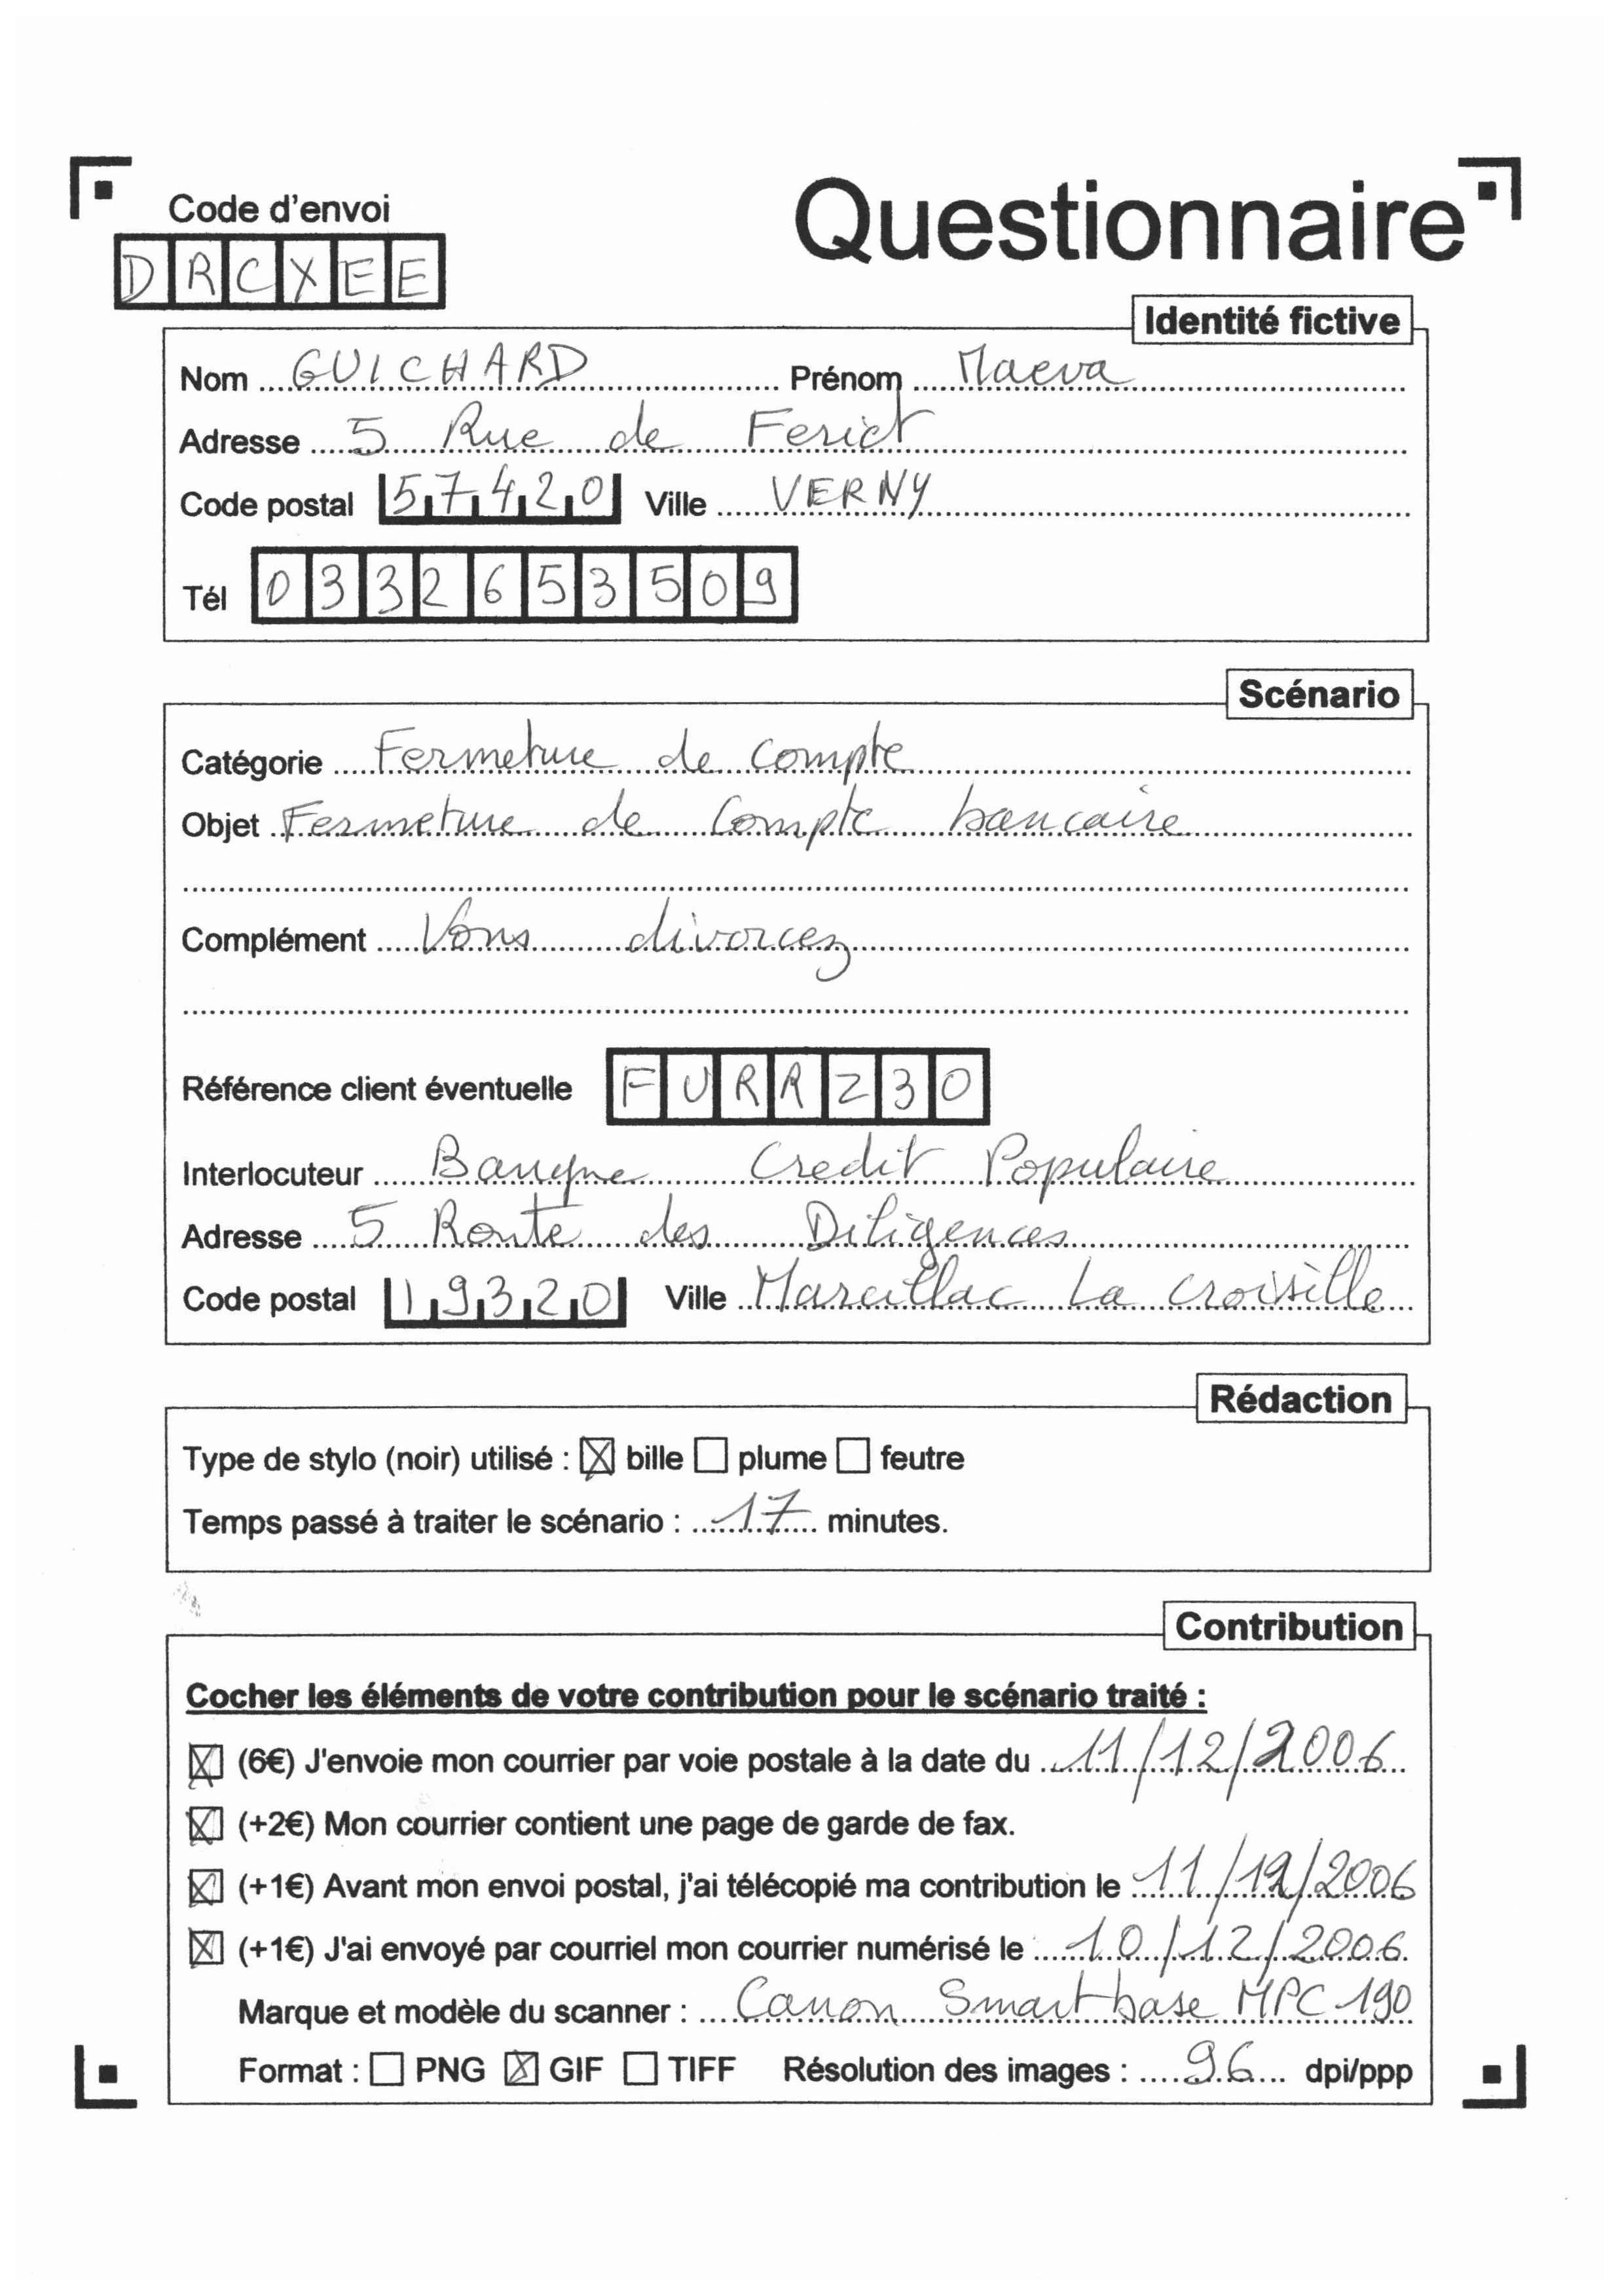 Code d'envoi
Questionnaire
DRCXEE
Identité fictive
Nom GUICHARD Prénom Maeva
Adresse 5 Rue de Ferict
Code postal 57420 Ville VERNY
Tél 0332653509
Scénario
Catégorie Fermeture de compte
Objet Fermeture de Compte bancaire
Complément Vous divorcez
Référence client éventuelle FURRZ30
Interlocuteur Banque Credit Populaire
Adresse 5 Route des Diligences
Code postal 19320 Ville Marcillac La Croisille
Rédaction
Type de stylo (noir) utilisé : ☒ bille ☐ plume ☐ feutre
Temps passé à traiter le scénario : 17 minutes.
Contribution
Cocher les éléments de votre contribution pour le scénario traité :
☒ (6€) J'envoie mon courrier par voie postale à la date du 11/12/2006
☒ (+2€) Mon courrier contient une page de garde de fax.
☒ (+1€) Avant mon envoi postal, j'ai télécopié ma contribution le 11/12/2006
☒ (+1€) J'ai envoyé par courriel mon courrier numérisé le 10/12/2006
Marque et modèle du scanner : Canon Smartbase MPC 190
Format : ☐ PNG ☒ GIF ☐ TIFF Résolution des images : 96 dpi/ppp